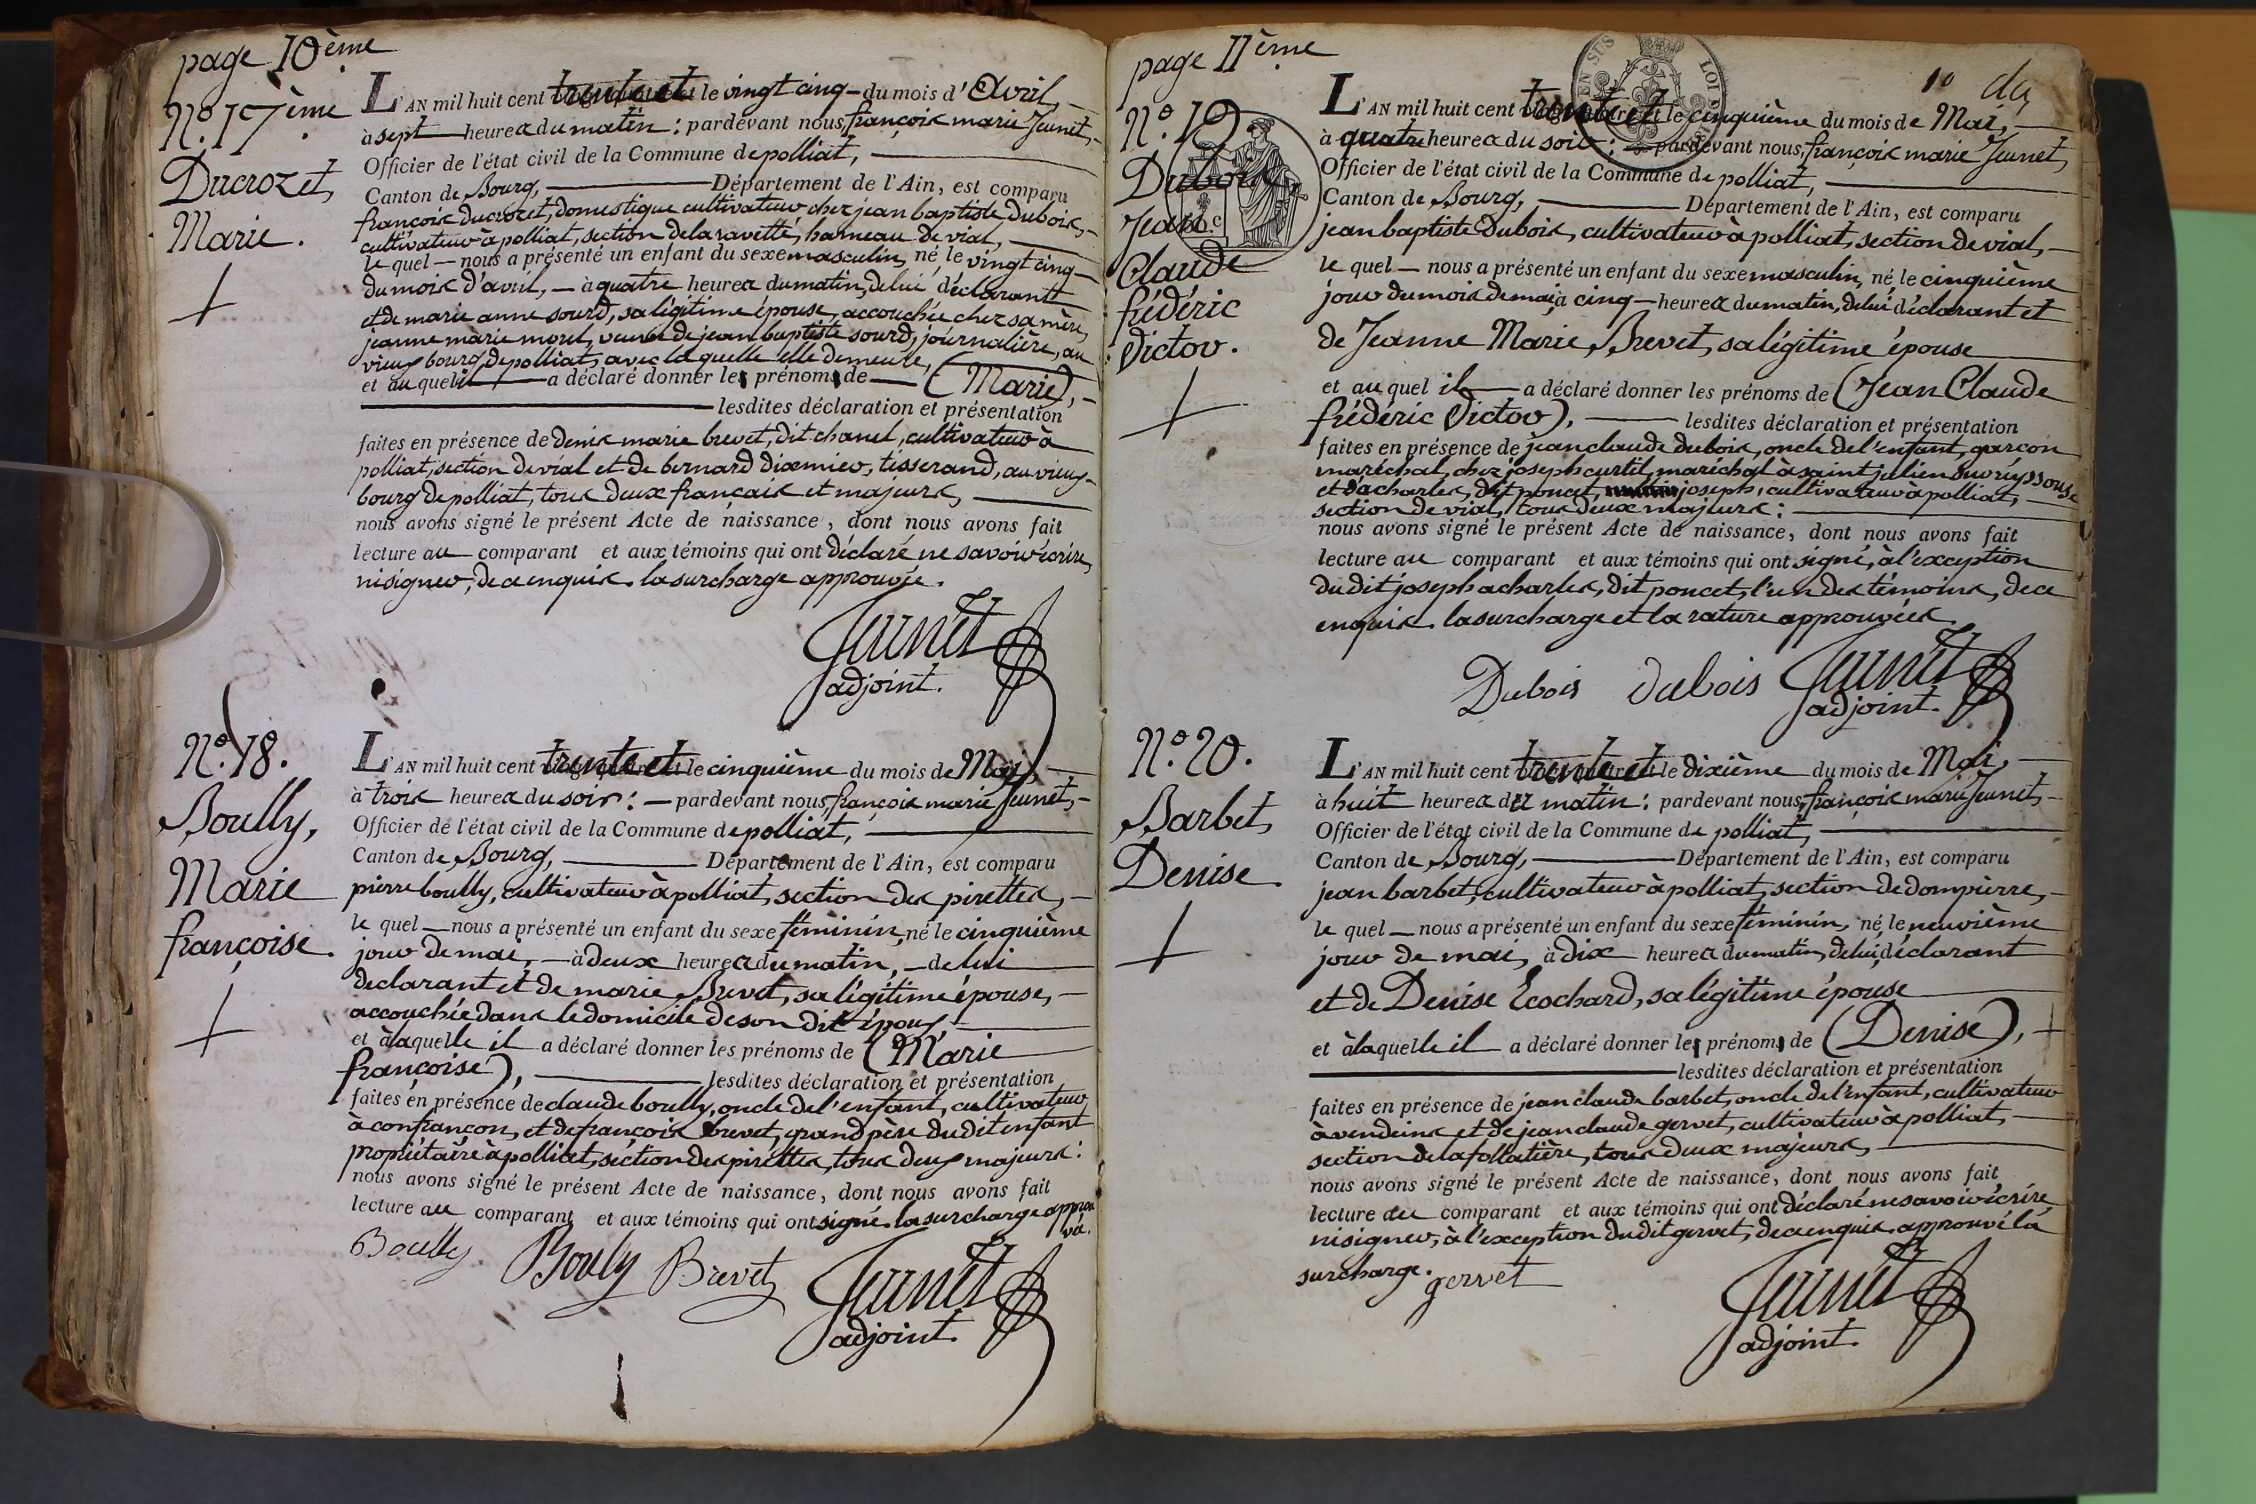 page 10ème
N.º 17ème
Ducrozet,
Marie.
L'AN mil huit cent trente et le vingt cinq du mois d'Avril,
à sept heures du matin : pardevant nous, françois marie Jeunet,
Officier de l'état civil de la Commune de polliat,
Canton de Bourg, Département de l'Ain, est comparu
françois ducrozet, domestique cultivateur chez jean baptiste Dubois,
cultivateur à polliat, section de la ravette, hameau de vial,
le quel nous a présenté un enfant du sexe masculin, né le vingt cinq
du mois d'avril, à quatre heures du matin, de lui déclarant
et de marie anne sourd, sa légitime épouse, accouchée chez sa mère,
jeanne marie morel, veuve de jean baptiste sourd, journalière, au
vieux bourg de polliat, avec laquelle elle demeure,
et au quel il a déclaré donner les prénoms de (Marie),
lesdites déclaration et présentation
faites en présence de denis marie brevet, dit chanel, cultivateur à
polliat, section de vial et de bernard dixmier, tisserand, au vieux
bourg de polliat, tous deux français et majeurs,
nous avons signé le présent Acte de naissance, dont nous avons fait
lecture au comparant et aux témoins qui ont déclaré ne savoir écrire,
ni signer, de ce enquis. la surcharge approuvée.
Jeunet
adjoint.
N.º 18.
Boully,
Marie
françoise.
L'AN mil huit cent trente et le cinquième du mois de Mai,
à trois heures du soir : pardevant nous, françois marie Jeunet,
Officier de l'état civil de la Commune de polliat,
Canton de Bourg, Département de l'Ain, est comparu
pierre boully, cultivateur à polliat, section des pirettes,
le quel nous a présenté un enfant du sexe féminin, né le cinquième
jour de mai, à deux heures du matin, de lui
declarant et de marie Brevet, sa légitime épouse,
accouchée dans le domicile de son dit époux,
et à laquelle il a déclaré donner les prénoms de (Marie
françoise), lesdites déclaration et présentation
faites en présence de claude boully, oncle de l'enfant, cultivateur
à confrançon, et de françois brevet, grand père du dit enfant
propriétaire à polliat, section des pirettes, tous deux majeurs :
nous avons signé le présent Acte de naissance, dont nous avons fait
lecture au comparant et aux témoins qui ont signé. la surcharge approu
vé.
Boully Bouly Brevet Jeunet
adjoint.
page 11ème
10
N.º 19
Dubois,
Jean
Claude
frédéric
Victor.
L'AN mil huit cent trente et le cinquième du mois de Mai,
à quatre heures du soir : pardevant nous, françois marie Jeunet,
Officier de l'état civil de la Commune de polliat,
Canton de Bourg, Département de l'Ain, est comparu
jean baptiste Dubois, cultivateur à polliat, section de vial,
le quel nous a présenté un enfant du sexe masculin, né le cinquième
jour du mois de mai à cinq heures du matin, de lui déclarant et
de Jeanne Marie Brevet, sa légitime épouse
et au quel il a déclaré donner les prénoms de (Jean Claude
frédéric Victor), lesdites déclaration et présentation
faites en présence de jean claude dubois, oncle de l'enfant, garçon
maréchal, chez joseph curtil, maréchal à saint julien sur réyssouse
et d'acharles, dit poncet, joseph, cultivateur à polliat,
section de vial, tous deux majeurs :
nous avons signé le présent Acte de naissance, dont nous avons fait
lecture au comparant et aux témoins qui ont signé, à l'exception
du dit joseph acharles, dit poncet, l'un des témoins, de ce
enquis. la surcharge et la rature approuvées.
Dubois dubois Jeunet
adjoint.
N.º 20.
Barbet,
Denise.
L'AN mil huit cent trente et le dixième du mois de Mai,
à huit heures du matin : pardevant nous, françois marie Jeunet,
Officier de l'état civil de la Commune de polliat,
Canton de Bourg, Département de l'Ain, est comparu
jean barbet, cultivateur à polliat, section de dompierre,
le quel nous a présenté un enfant du sexe féminin, né le neuvième
jour de mai, à dix heures du matin, de lui, déclarant
et de Denise Ecochard, sa légitime épouse
et à laquelle il a déclaré donner les prénoms de (Denise),
lesdites déclaration et présentation
faites en présence de jean claude barbet, oncle de l'enfant, cultivateur
à vendeins et de jean claude gervet, cultivateur à polliat,
section de la follatière, tous deux majeurs,
nous avons signé le présent Acte de naissance, dont nous avons fait
lecture au comparant et aux témoins qui ont déclaré ne savoir écrire,
ni signer, à l'exception du dit gervet, de ce enquis. approuvé la
surcharge.
gervet Jeunet
adjoint.